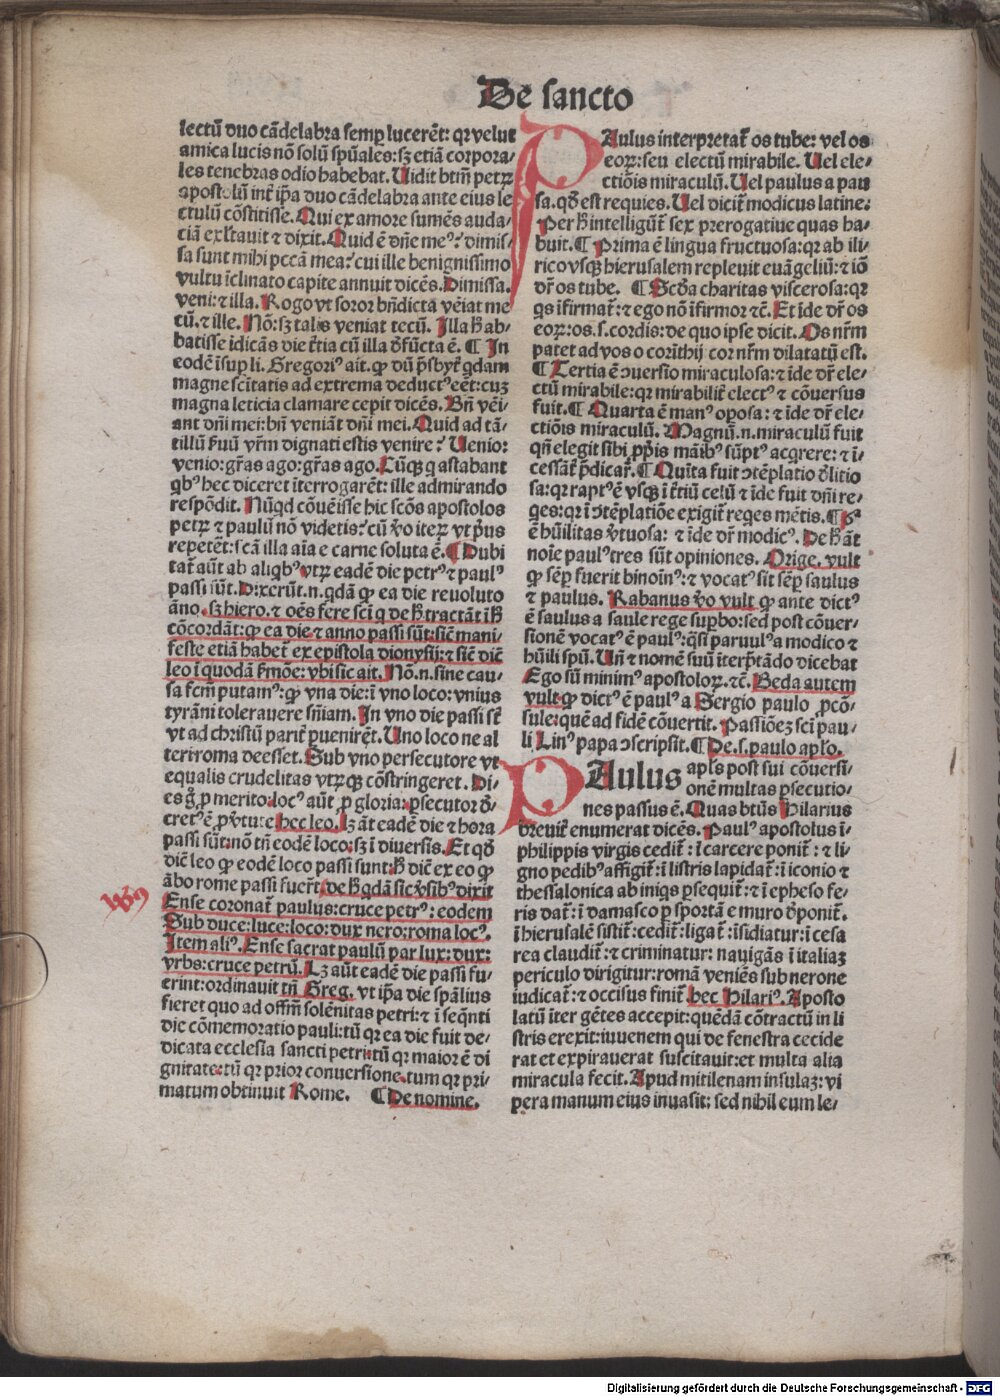 De sancto
lectū duo cādelabra semp lucerēt: qꝛ velut
amica lucis nō solū spūales: sꝫ etiā corpora⸗
les tenebras odio habebat. Uidit btm̄ petrꝝ
apostolū int̄ ip̄a duo cādelabra ante eius le
ctulū cōstitisse. Qui ex amore sumēs auda⸗
ciā exl̄tauit ⁊ dixit. Quid ē dn̄e meꝰ? dimis⸗
sa sunt mihi pctā mea? cui ille benignissimo
vultu īclinato capite annuit dicēs. Dimissa.
veni: ⁊ illa. Rogo vt soror bn̄dicta vēiat me
cū. ⁊ ille. Nō: sꝫ talis veniat tecū. Illa h̄ ab⸗
batisse īdicās die t̄tia cū illa d̄fūcta ē. ¶ In
eodē īsup li. Gregoriꝰ ait. ꝙ dū p̄sbyt̄ q̄dam
magne sc̄itatis ad extrema deductꝰ eēt: cuꝫ
magna leticia clamare cepit dicēs. Bn̄ vēi⸗
ant dn̄i mei: bn̄ veniāt dn̄i mei. Quid ad tā⸗
tillū ẜuū vr̄m dignati estis venire? Uenio:
venio: gr̄as ago: gr̄as ago. Cūqꝫ q astabant
qbꝰ hec diceret īterrogarēt: ille admirando
respōdit. Nūqd cōuēisse hic scōs apostolos
petrꝝ ⁊ paulū nō videtis? cū v̄o iterꝝ vt p̄us
repetēt: scā illa aīa e carne soluta ē. ¶ Dubi
tat̄ aūt ab aliqbꝰ vtrꝝ eadē die petrꝰ ⁊ paulꝰ
passi sūt. Dixerūt .n. qdā ꝙ ea die reuoluto
āno. sꝫ hiero. ⁊ oēs fere sci q de h̄ tractāt ī h̄
cōcordāt: ꝙ ea die ⁊ anno passi sūt: sic̄ mani⸗
feste etiā habet̄ ex epistola dionysij: ⁊ sic̄ dic̄
leo ī quodā ẜmōe: vbi sic ait. Nō .n. sine cau⸗
sa fcm̄ putamꝰ: ꝙ vna die: ī vno loco: vnius
tyrāni tolerauere sn̄iam. In vno die passi st̄
vt ad christū parit̄ puenirēt. Uno loco ne al
teri roma deesset. Sub vno persecutore vt
equalis crudelitas vtrūqꝫ cōstringeret. Di⸗
es g̊ p merito: locꝰ aūt p gloria: psecutor d̄⸗
cretꝰ ē p v̄tute hec leo. Lꝫ āt eadē die ⁊ hora
passi sūt: nō tn̄ eodē loco: sꝫ ī diuersis. Et qd̄
dic̄ leo ꝙ eodē loco passi sunt: h̄ dic̄ ex eo ꝙ
ābo rome passi fuer̄t. de h̄ qdā sic v̄sibꝰ dixit
Ense coronat̄ paulus: cruce petrꝰ: eodem
Sub duce: luce: loco: dux nero: roma locꝰ.
Item aliꝰ. Ense sacrat paulū par lux: dux:
vrbs: cruce petrū. Lꝫ aūt eadē die passi fu⸗
erint: ordinauit tn̄ Greg. vt ip̄a die sp̄alius
fieret quo ad offm̄ solēnitas petri: ⁊ ī seqn̄ti
die cōmemoratio pauli: tū qꝛ ea die fuit de⸗
dicata ecclesia sancti petri: tū qꝛ maior ē di
gnitate: tū qꝛ prior conuersione. tum qꝛ pri⸗
matum obtinuit Rome. ¶ De nomine.
PAulus interpretat̄ os tube: vel os
eorꝝ: seu electū mirabile. Uel ele⸗
ctiōis miraculū. Uel paulus a pau
sa. qd̄ est requies. Uel dicit̄ modicus latine:
Per h̄ intelligūt̄ sex prerogatiue quas ha⸗
buit. ¶ Prima ē lingua fructuosa: qꝛ ab ili⸗
rico vsqꝫ hierusalem repleuit euāgeliū: ⁊ iō
dr̄ os tube. ¶ Scd̄a charitas viscerosa: qꝛ
qs ifirmat̄: ⁊ ego nō ifirmor ⁊c̄. Et ide dr̄ os
eorꝝ: os .s. cordis: de quo ipse dicit. Os nr̄m
patet ad vos o corithij cor nr̄m dilatatū est.
¶ Tertia ē ꝯuersio miraculosa: ⁊ ide dr̄ ele⸗
ctū mirabile: qꝛ mirabilit̄ electꝰ ⁊ cōuersus
fuit. ¶ Quarta ē manꝰ oposa: ⁊ ide dr̄ ele⸗
ctiōis miraculū. Magnū .n. miraculū fuit
qn̄ elegit sibi ppijs māibꝰ sūptꝰ acqrere: ⁊ ī⸗
cessāt̄ p̄dicar̄. ¶ Quīta fuit ꝯtēplatio d̄litio
sa: qꝛ raptꝰ ē vsqꝫ ī t̄tiū celū ⁊ ide fuit dn̄i re⸗
qes: qꝛ ī ꝯtēplatiōe exigit̄ reqes mētis. ¶ 6ª
ē hūilitas v̄tuosa: ⁊ ide dr̄ modicꝰ. De h̄ āt
noīe paulꝰ tres sūt opiniones. Orige. vult
ꝙ sēp fuerit binoīnꝰ: ⁊ vocatꝰ sit sēp saulus
⁊ paulus. Rabanus v̄o vult ꝙ ante dictꝰ
ē saulus a saule rege supbo: sed post cōuer⸗
sionē vocatꝰ ē paulꝰ: qsi paruulꝰ a modico ⁊
hūili spū. Un̄ ⁊ nomē suū iterp̄tādo dicebat
Ego sū minimꝰ apostolorꝝ. ⁊c̄. Beda autem
vult ꝙ dictꝰ ē paulꝰ a Sergio paulo pcō⸗
sule: quē ad fidē cōuertit. Passiōeꝫ sci pau⸗
li Linꝰ papa ꝯscripsit. ¶ De .s. paulo aplo.
PAulus apls post sui cōuersi⸗
onē multas psecutio⸗
nes passus ē. Quas btūs Hilarius
breuit̄ enumerat dicēs. Paulꝰ apostolus ī
philippis virgis cedit̄: ī carcere ponit̄: ⁊ li⸗
gno pedibꝰ affigit̄: ī listris lapidat̄: ī iconio ⁊
thessalonica ab iniqs psequit̄: ⁊ ī epheso fe⸗
ris dat̄: ī damasco p sportā e muro d̄ponit̄.
ī hierusalē sistit̄: cedit̄: ligat̄: īsidiatur: ī cesa
rea claudit̄: ⁊ criminatur: nauigās ī italiaꝫ
periculo dirigitur: romā veniēs sub nerone
iudicat̄: ⁊ occisus finit̄ hec Hilariꝰ. Aposto
latū iter gētes accepit: quēdā cōtractū in li
stris erexit: iuuenem qui de fenestra cecide
rat et expirauerat suscitauit: et multa alia
miracula fecit. Apud mitilenam insulaꝫ: vi
pera manum eius inuasit: sed nihil eum le⸗
Digitalisierung gefördert durch die Deutsche Forschungsgemeinschaft - DFG